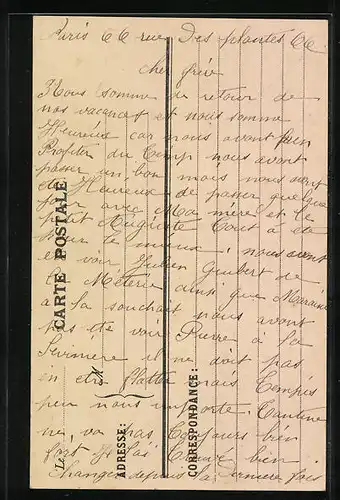 Paris 66 rue Des plantes 66
cher frère
Nous somme de retour de
nos vacances et nous somme
Heureux car nous avont bien
Profiter du Temp nous avont
passer un bon mois nous avont
été Heureux de passer quelque
jour avec Ma mère et le
petit Auguste Tous a été
pour le mieux ; nous avont
été voir Julien Guibert de
la Méterie ainsi que Maraine
a la souchait nous avont
pas été voir Pierre à la
Sevinière il ne doit pas
en etre flatter mais Tempis
peu nous importe. 
ne va pas Toujours bien
fort Je l'ai Trouvé bien
Changer depuis la Dernière fois
CARTE POSTALE
Le
ADRESSE:
CORRESPONDANCE: